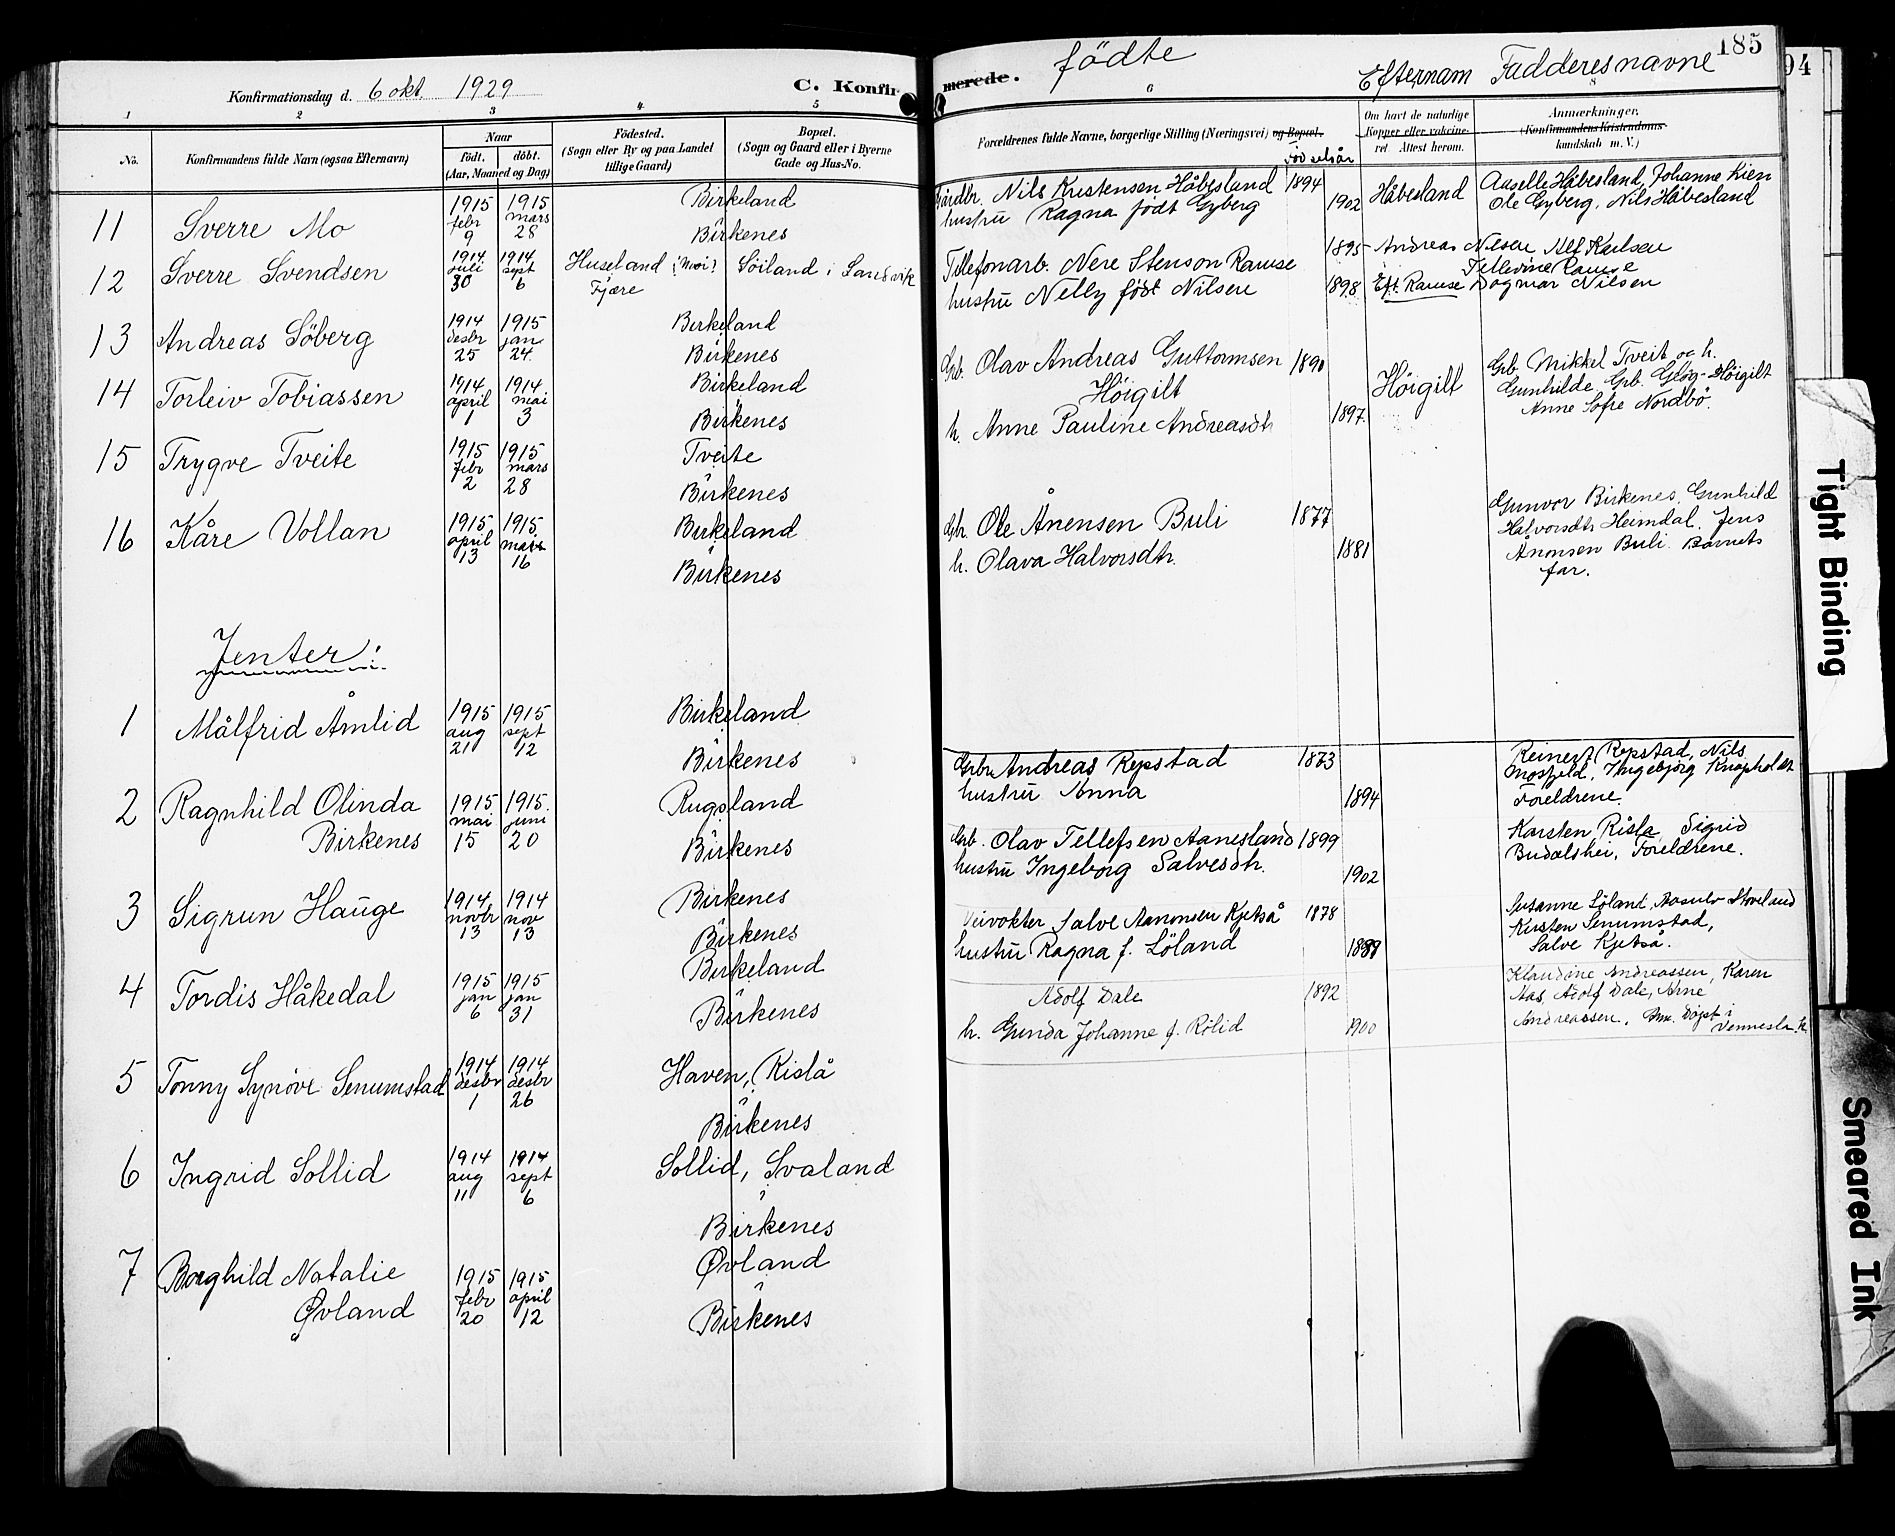 Konfirmationsdag d. 6 okt. 1929 C. Konfir
1 2 3 4 5
No.
Konfirmandens fulde Navn (ogsaa Efternavn)
Naar
født. døbt.
(Aar, Maaned og Dag)
Fødested.
(Sogn eller By og paa Landet
tillige Gaard)
Bopæl.
(Sogn og Gaard eller i Byerne
Gade og Hus-No.
11 Sverre Mo 1915 febr 9 1915 mars 28 Birkeland
Birkenes
12 Sverre Svendsen 1914 juli 30 1914 sept 6 Huseland Fjære Søiland i Landvik
13 Andreas Söberg 1914 desbr 25 1915 jan 24 Birkeland
Birkenes
14 Torleiv Tobiassen 1914 april 1 1914 mai 3 Birkeland
Birkenes
15 Trygve Tveite 1915 febr 2 1915 mars 28 Tveite
Birkenes
16 Kåre Vollan 1915 april 13 1915 mars 16 Birkeland
Birkenes
Jenter:
1 Målfrid Åmlid 1915 aug 21 1915 sept 12 Birkeland
Birkenes
2 Ragnhild Olinda
Birkenes 1915 mai 15 1915 juni 20 Rugsland
Birkenes
3 Sigrun Hauge 1914 novbr 13 1914 nov 13 Birkenes
Birkenes
4 Tordis Håkedal 1915 jan 6 1915 jan 31 Birkeland
Birkenes
5 Tonny Synöve Senumstad 1914 desbr 1 1914 desbr 26 Haven, Rislå
i
Birkenes
6 Ingrid Sollid 1914 aug 11 1914 sept 6 Sollid, Svaland
i
Birkenes
7 Borghild Natalie
Øvland 1915 febr 20 1915 april 12 Øvland
i
Birkenes
185
merede. födte Efternam Fadderes navne
6 8
Forældrenes fulde Navne, borgerlige Stilling (Næringsvei) og Bopæl.
Födselsår
Om havt de naturlige
Kopper eller vakcine-
ret. Attest herom.
Anmærkninger.
(Konfirmandens Kristendoms-
kundskab m. V.)
Gårdbr. Nils Kristensen Håbesland 1894 Håbesland Aaselle Håbesland, Johanne Lien
hustru Ragna født Gyberg 1902 Ole Gyberg, Nils Håbesland
Telefonarb. Nere Stenson Ramse 1895 Andreas Nilsen Alf Karlsen
Tellevine Ramse
hustru Nelly født Nilsen 1898 Eft. Ramse Dagmar Nilsen
Grb. Olav Andreas Guttormsen 1890 Grb Mikkel Tveit og h.
Høigilt Høigilt Gunhilde, Grb. Gløg-Høigilt
h. Anne Pauline Andreasdtr 1897 Anne Sofie Nordbø.
Grb. Ole Ånensen Buli 1877 Gunvor Birkenes, Gunhild
Halvorsdtr Heimdal. Jens
h. Olava Halvorsdtr. 1881 Ånonsen Buli. Barnets
far.
Grbr Andreas Repstad 1873 Reinert Repstad, Nils
Mosfjeld, Ingebjørg Knapholdt
hustru Anna 1894 Foreldrene.
Grb. Olav Tellefsen Aanesland 1899 Karsten Risla, Sigrid
hustru Ingeborg Salvesdtr. 1902 Budalshei, Foreldrene.
Veivokter Salve Aanonsen Kjetså 1878 Susanne Løland, Aasulv Stoveland
Kirsten Senumstad,
hustru Ragna f. Löland Salve Kjetså.
Adolf Dale 1892 Klaudine Andreassen, Karen
Aas, Adolf Dale, Arne
h. Gunda Johanne f. Rølid 1900 Andreassen. Anm. Døpt i
Vennesla. k
94
Tight Binding
Smeared Ink